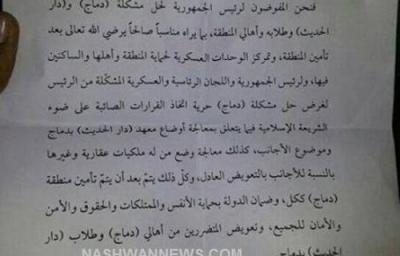 فنحن المفوضون لرئيس الجمهورية لحل مشكلة (دماج) و(دار
الحديث) وطلابه وأهالي المنطقة، بما يراه مناسباً صالحاً يرضي الله تعالى بعد
تأمين المنطقة، وتمركز الوحدات العسكرية لحماية المنطقة وأهلها والساكنين
فيها، ولرئيس الجمهورية واللجان الرئاسية والعسكرية المشكّلة من الرئيس
لغرض حل مشكلة (دماج) حرية اتخاذ القرارات الصائبة على ضوء
الشريعة الإسلامية فيما يتعلق بمعالجة أوضاع معهد (دار الحديث) بدماج
وموضوع الأجانب، كذلك معالجة وضع من له ملكيات عقارية وغيرها
بالنسبة للأجانب بالتعويض العادل، وكلّ ذلك يتمّ بعد أن يتمّ تأمين منطقة
(دماج) ككل، وضمان الدولة بحماية الأنفس والممتلكات والحقوق والأمن
والأمان للجميع، وتعويض المتضررين من أهالي (دماج) وطلاب (دار
الحديث) بدماج
NASHWANNEWS.COM